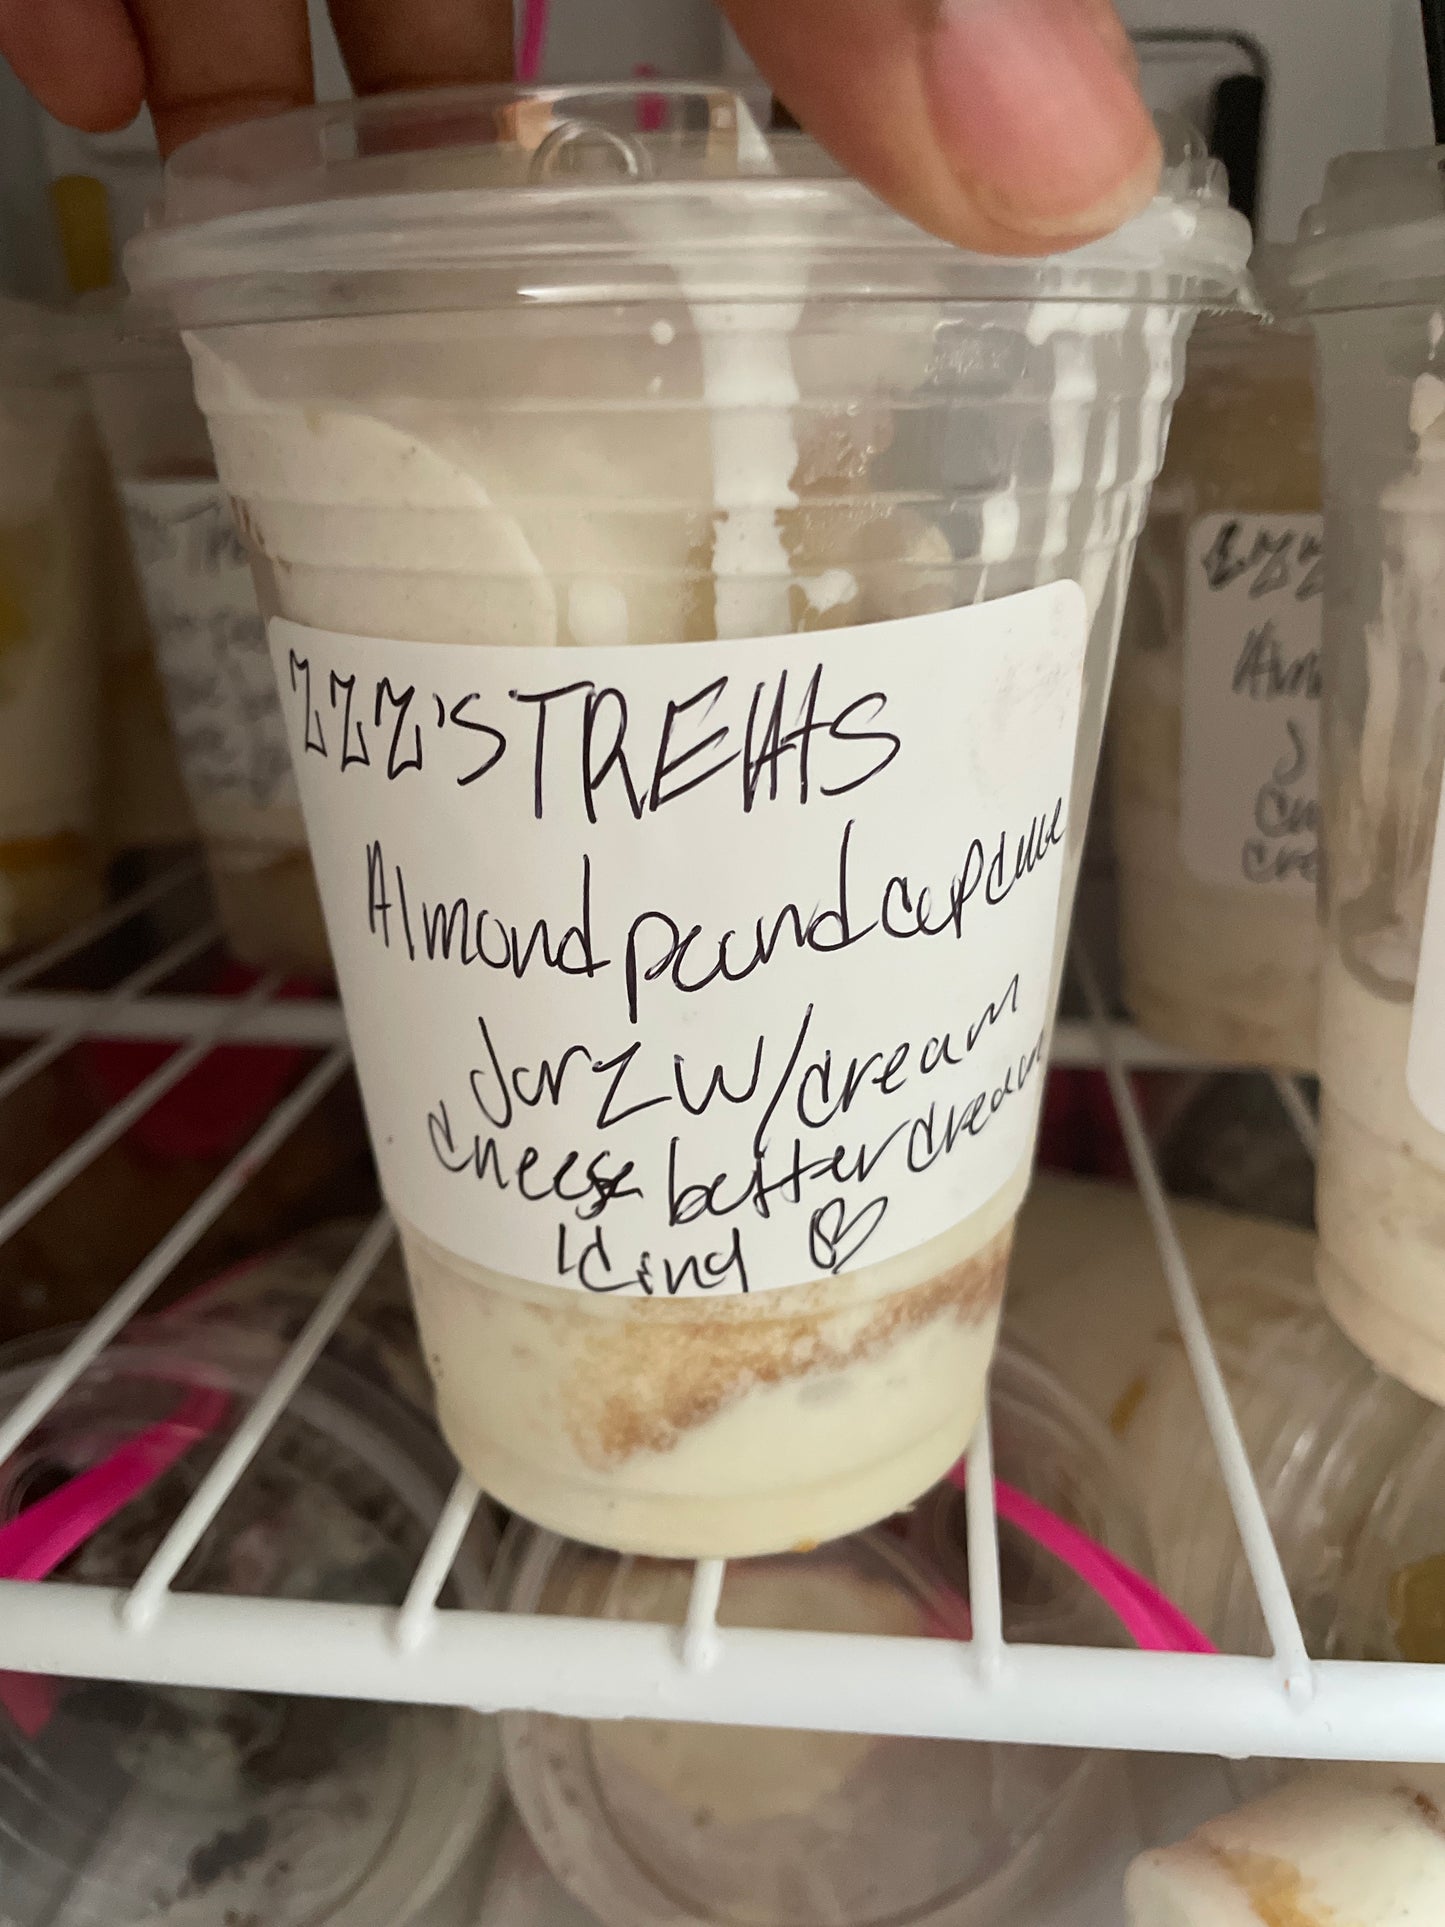 ZZZ'S TREATS
Almond pound cupcake
Jarz w/cream
cheese buttercream
icing
ZZZ